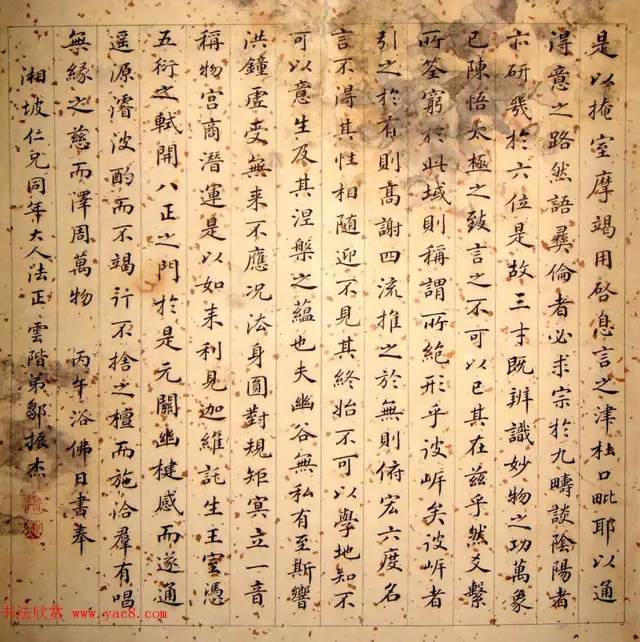 是以掩室摩竭用啓息言之津杜口毗耶以通
得意之路然語彝倫者必求宗於九疇談陰陽者
亦研幾於六位是故三才既辨識妙物之功萬象
已陳悟太極之致言之不可以已其在兹乎然爻繫
所筌窮於此域則稱謂所絕形乎彼岸矣彼岸者
引之於有則高謝四流推之於無則俯宏六度名
言不得其性相隨迎不見其終始不可以學地知不
可以意生及其涅槃之藴也夫幽谷無私有至斯響
洪鐘虛受無来不應况法身圓對規矩冥立一音
稱物宮商潛運是以如来利見迦維託生王室憑
五衍之軾開八正之門於是元關幽楗感而遂通
遥源濬波酌而不竭行不捨之檀而施洽羣有唱
無緣之慈而澤周萬物 丙午浴佛日書奉
湘坡仁兄同年大人法正 雲階弟鄒振杰
书法欣赏 www.yac8.com